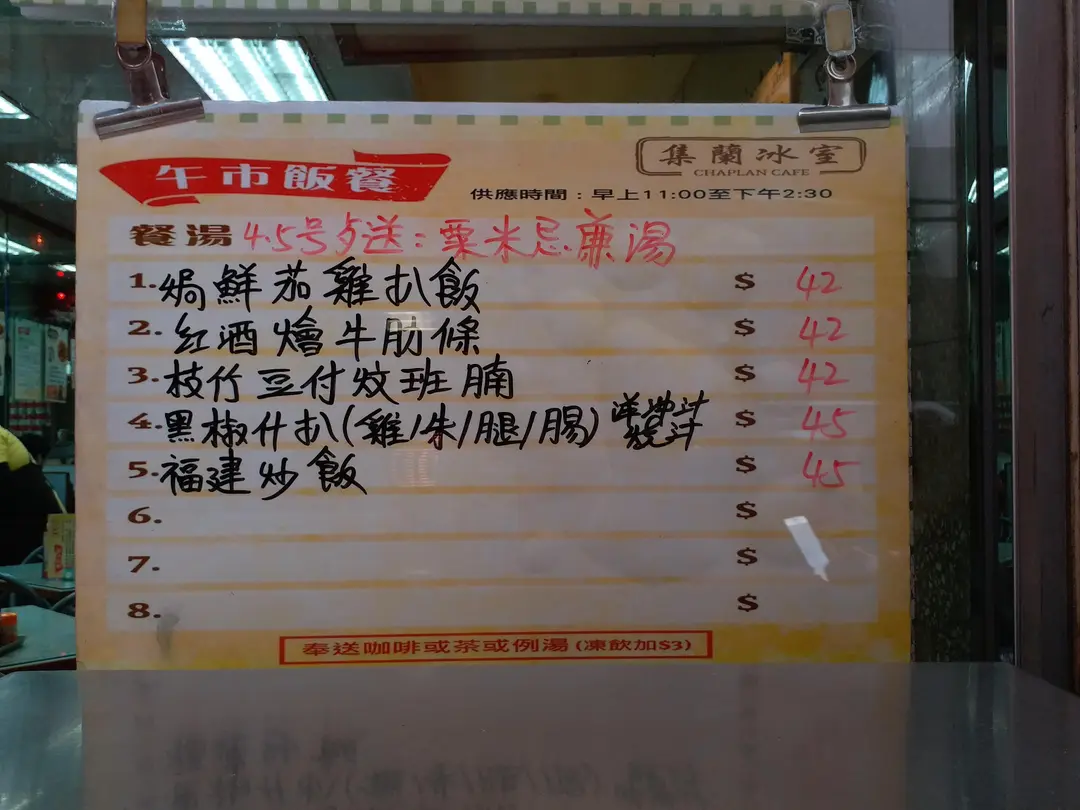 集蘭冰室
CHAPLAN CAFE
午市飯餐
供應時間：早上11:00至下午2:30
餐湯 4.5号歺送：粟米忌廉湯
1. 焗鮮茄雞扒飯 $ 42
2. 红酒燴牛肋條 $ 42
3. 枝竹豆付炆班腩 $ 42
4. 黑椒什扒(雞/朱/腿/腸) $ 45
5. 福建炒飯 $ 45
6. $
7. $
8. $
奉送咖啡或茶或例湯(凍飲加$3)